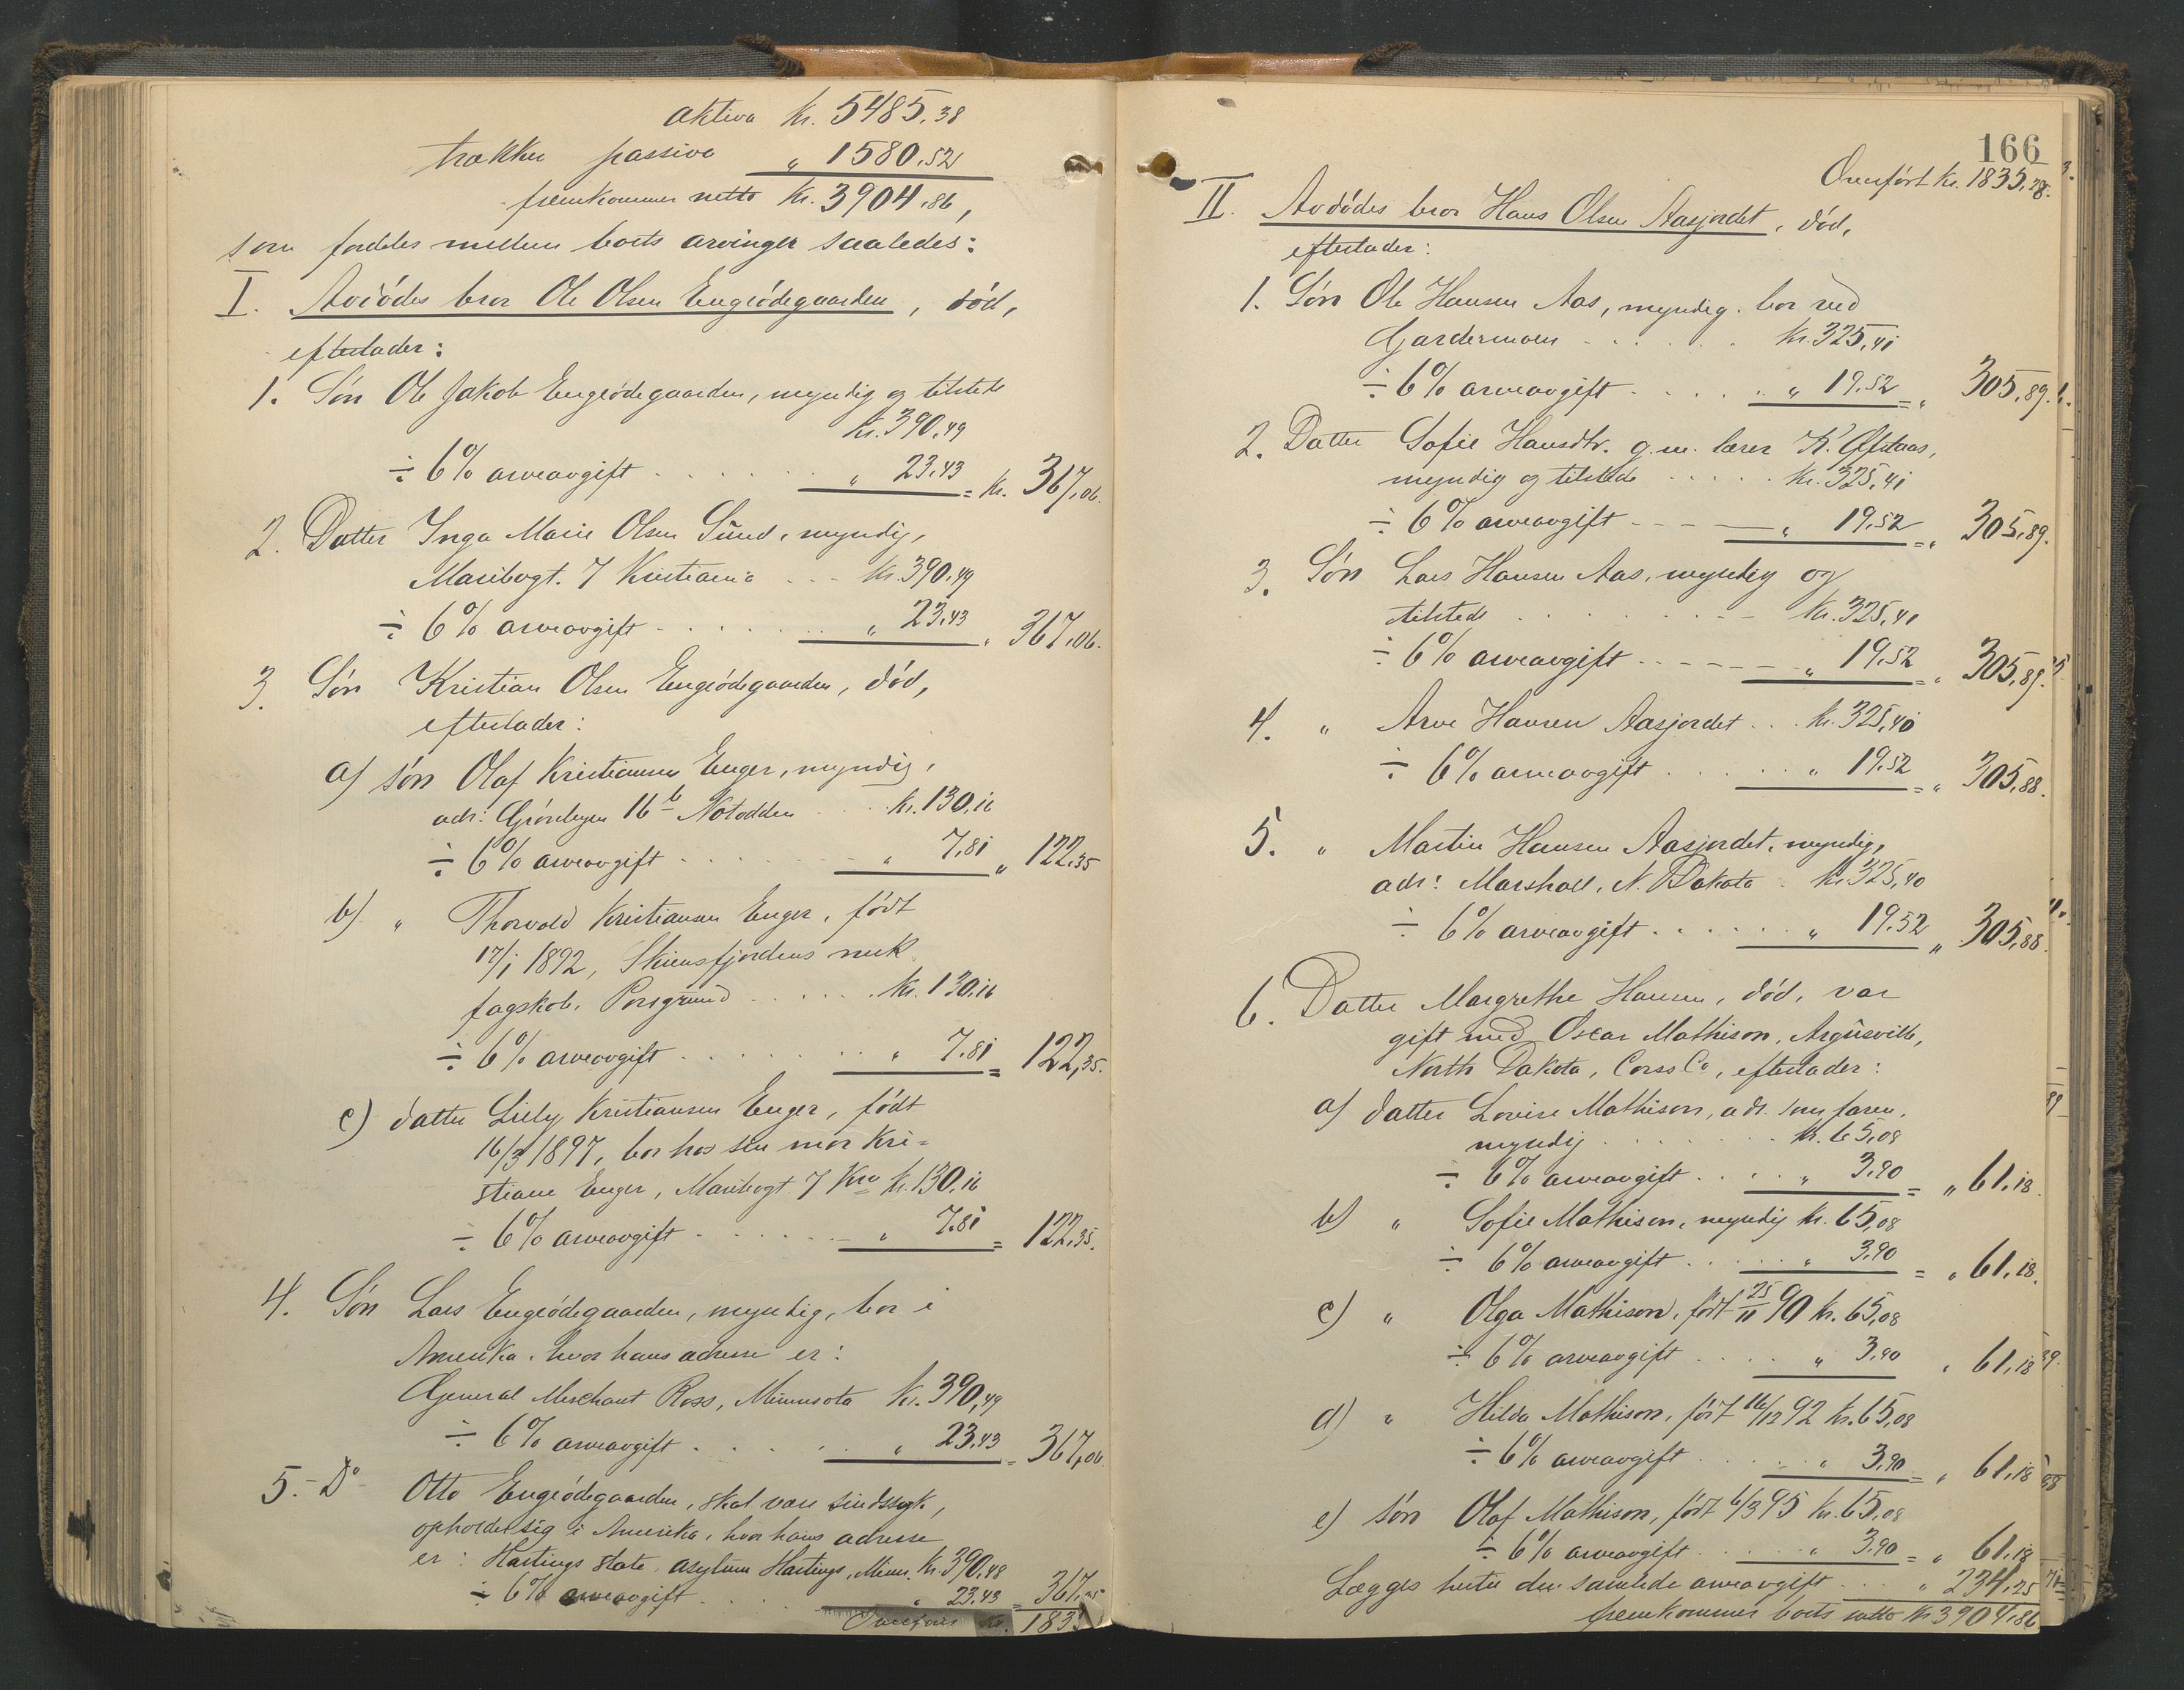 aktiva kr. 5485,38
trækkes passiva " 1580,52
fremkommer netto kr. 3904,86,
som fordeles mellem boets arvinger saaledes:
I. Avdødes bror Ole Olsen Engrødegaarden, død,
efterlader:
1. Søn Ole Jakob Engrødegaarden, myndig og tilstede
kr. 390,49
÷ 6% arveavgift " 23,43 = kr. 367,06.
2. Datter Inga Marie Olsen Sund, myndig,
Maribogt. 7 Kristiania kr. 390,49
÷ 6% arveavgift " 23,43 " 367,06.
3. Søn Kristian Olsen Engrødegaarden, død,
efterlader:
a) søn Olaf Kristiansen Enger, myndig,
adr: Grønbyen 16 b Notodden kr. 130,16
÷ 6% arveavgift " 7,81 " 122,35
b) " Thorvald Kristiansen Enger, født
17/1 1892, Skiensfjordens mek.
fagskole, Porsgrund kr. 130,16
÷ 6% arveavgift " 7,81 = 122,35.
c) datter Liely Kristiansen Enger, født
16/3 1897, bor hos sin mor Kri=
stiane Enger, Maribogt. 7 Kra kr. 130,16
÷ 6% arveavgift " 7,81 = 122,35.
4. Søn Lars Engrødegaarden, myndig, bor i
Amerika, hvor hans adresse er:
General Merchant Ross, Minnesota kr. 390,49
÷ 6% arveavgift " 23,43 = 367,06
5. Do Otto Engrødegaarden, skal være sindssyk,
opholder sig i Amerika, hvor hans adresse
er: Hastings state asylum Hastings, Minn. kr. 390,48
÷ 6% arveavgift " 23,43 = 367,05
Overføres kr. 183
166
Overført kr. 1835,28.
II. Avdødes bror Hans Olsen Aasjordet, død,
efterlader:
1. Søn Ole Hansen Aas, myndig, bor ved
Gardermoen kr. 325,41
÷ 6% arveavgift " 19,52 = " 305,89.
2. Datter Sofie Hansdtr. g.m. lærer K. Ofstaas,
myndig og tilstede kr. 325,41
÷ 6% arveavgift " 19,52 = " 305,89.
3. Søn Lars Hansen Aas, myndig og
tilstede kr. 325,41
÷ 6% arveavgift " 19,52 = " 305,89.
4. " Arve Hansen Aasjordet kr. 325,40
÷ 6% arveavgift " 19,52 = " 305,88.
5. " Martin Hansen Aasjordet, myndig,
adr: Marshall, N. Dakota kr. 325,40
÷ 6% arveavgift " 19,52 " 305,88.
6. Datter Margrethe Hansen, død, var
gift med Oscar Mathison, Argusville,
North Dakota, Corss Co, efterlader:
a) datter Lovise Mathison, adr. som faren,
myndig kr. 65,08
÷ 6% arveavgift " 3,90 = " 61,18.
b) " Sofie Mathison, myndig kr. 65,08
÷ 6% arveavgift " 3,90 = " 61,18.
c) " Olga Mathison, født 25/11 90 kr. 65,08
÷ 6% arveavgift " 3,90 " 61,18
d) " Hilda Mathison, født 16/12 92 kr. 65,08
÷ 6% arveavgift " 3,90 = " 61,18
e) søn Olaf Mathison, født 6/3 95 kr. 65,08
÷ 6% arveavgift " 3,90 = " 61,18
Lægges hertil den samlede arveavgift " 234,25
fremkommer boets netto kr. 3904,86